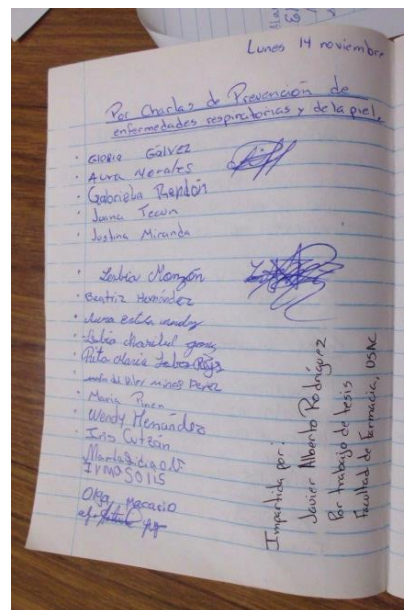 Lunes 14 noviembre
Por Charlas de Prevención de
enfermedades respiratorias y de la piel.
Gloria Gálvez
Aura Morales
Gabriela Rendón
Juana Tecun
Justina Miranda
Lesbia Monzón
Beatriz Hernández
Aura
Rita Maria
Perez
Maria
Wendy Hernández
Iris Cutzán
Irma Solis
Olga Macario
Impartida por:
Javier Alberto Rodríguez
Por trabajo de tesis
Facultad de Farmacia, USAC